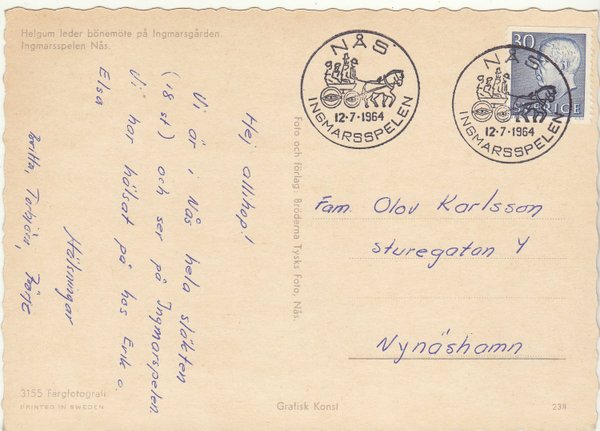 Helgum leder bönemöte på Ingmarsgården.
Ingmarsspelen Nås.
Hej allihop!
Vi är i Nås hela släkten
(18 st) och ser på Ingmarspelen
Vi har hälsat på hos Erik o.
Elsa
Hälsningar
Britta, Torbjörn, Börje
Foto och förlag: Bröderna Tysks Foto, Nås.
NÅS
12-7-1964
INGMARSSPELEN
30
SVERIGE
NÅS
12-7-1964
INGMARSSPELEN
Fam. Olov Karlsson
Sturegatan 4
Nynäshamn
3155 Färgfotografi
PRINTED IN SWEDEN
Grafisk Konst
238